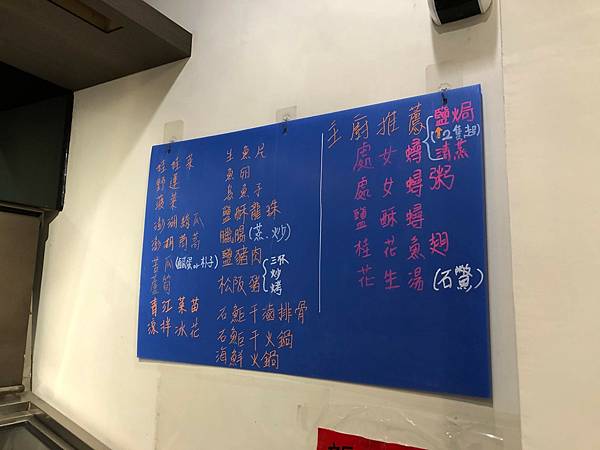 娃娃菜
野蓮
菜
澎湖絲瓜
澎湖
苦瓜(鹹蛋or朴子)
蘆筍
青江菜苗
涼拌冰花
生魚片
魚卵
烏魚子
鹽酥龍珠
臘腸(蒸.炒)
鹽豬肉
松阪豬
三杯
炒
烤
石鮔干滷排骨
石鮔干火鍋
海鮮火鍋
主廚推薦
處女蟳
鹽焗
(2隻起)
清蒸
處女蟳粥
鹽酥蟳
桂花魚翅
花生湯(石鱉)